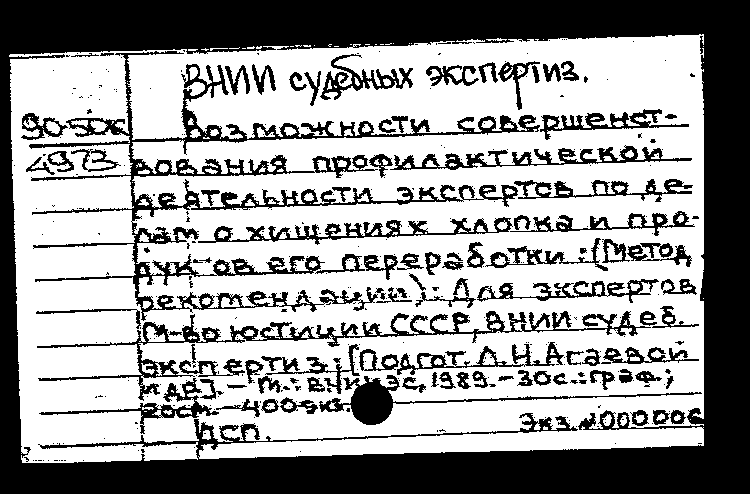 ВНИИ судебных экспертиз.
90-50к
Возможности совершенст-
4973
вования профилактической
деятельности экспертов по де-
лам о хищениях хлопка и про-
дуктов его переработки : (Метод.
рекомендации) : Для экспертов /
М-во юстиции СССР, ВНИИ судеб.
экспертиз ; [Подгот. Л.Н. Агаевой
и др.]. — М. : ВНИИСЭ, 1989. — 30с. : граф. ;
20см. — 400 экз.
ДСП.
Экз. №000006